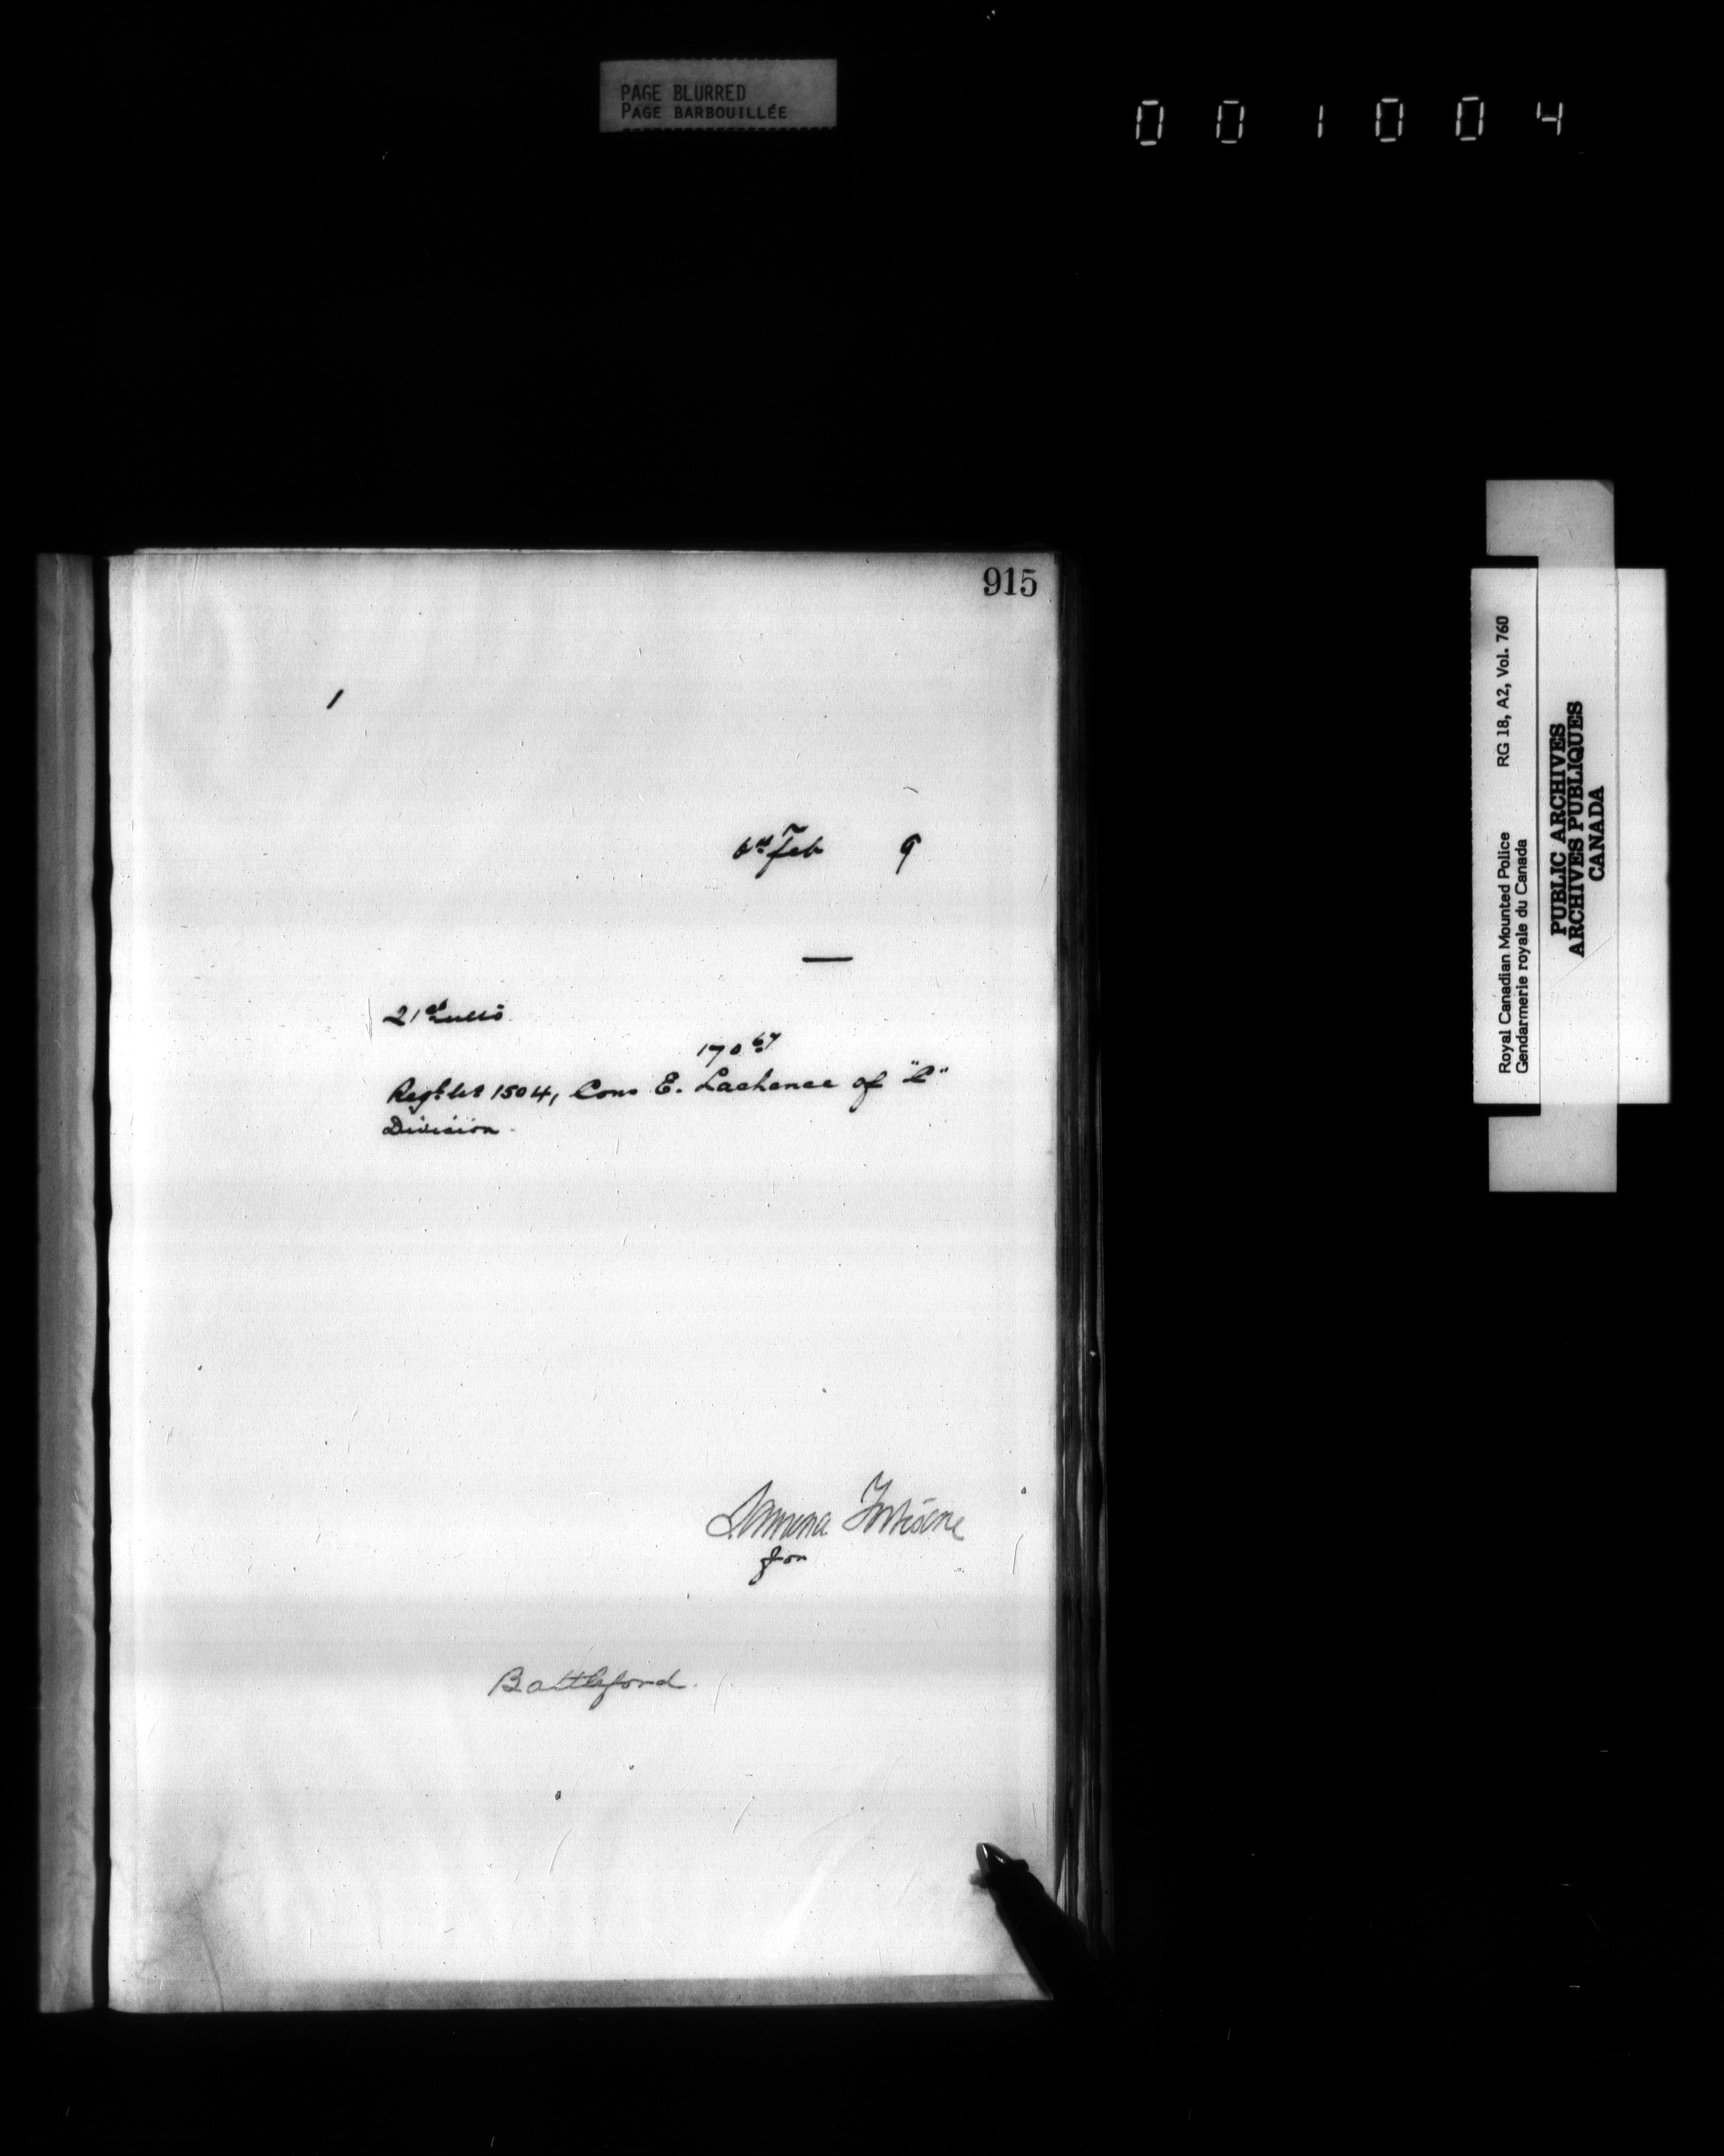 PAGE BLURRED
PAGE BARBOUILLÉE
001004
915
1
6th Feb 9
—
21st ulto
170 67
Regtl No 1504, Cons E. Lachance of "C"
Division.
for
Battleford.
Royal Canadian Mounted Police RG 18, A2, Vol. 760
Gendarmerie royale du Canada
PUBLIC ARCHIVES
ARCHIVES PUBLIQUES
CANADA